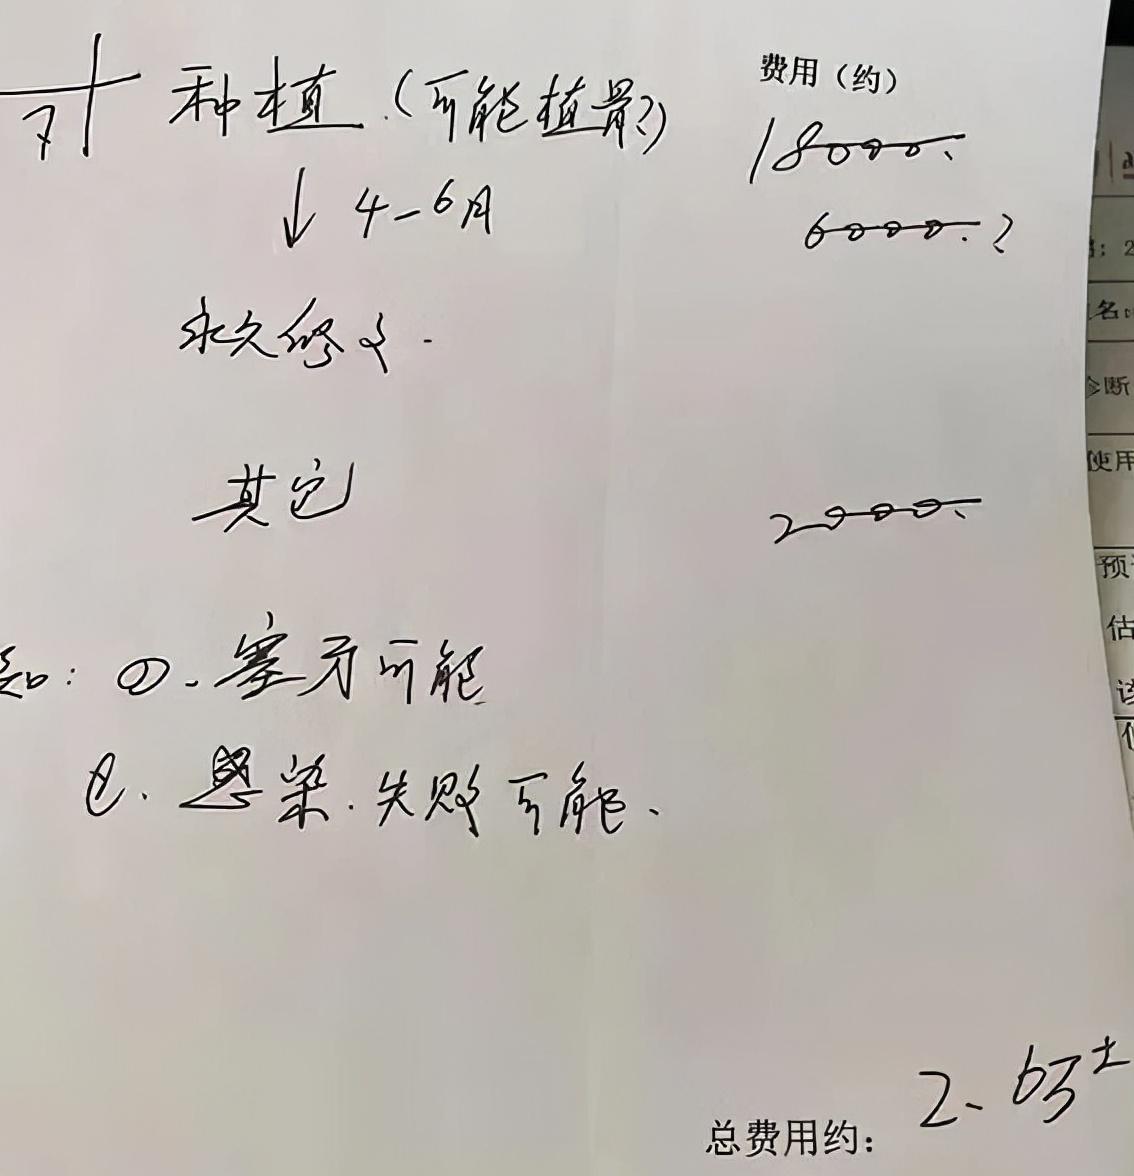 费用（约）
7 种植.（可能植骨?） 18000.
↓ 4-6月 6000.?
永久修复.
其它 2000.
知: ①. 塞牙可能
②. 感染.失败可能.
总费用约： 2.6万±
名:
诊断
使用
预
估